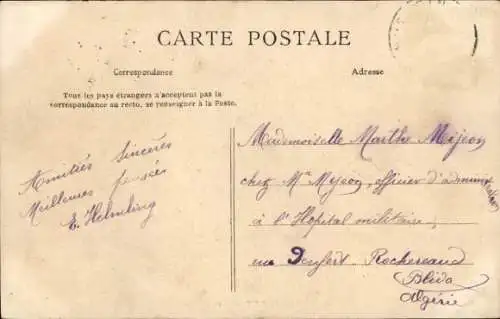 CARTE POSTALE
Correspondance
Adresse
Tous les pays étrangers n'acceptent pas la
correspondance au recto, se renseigner à la Poste.
Amitiés Sincères
Meilleures pensées
E. Helmling
Mademoiselle Marthe Mijeon
chez Mr Mijeon, officier d'administration
à l'Hopital militaire,
rue Denfert Rochereau
Blida
Algérie